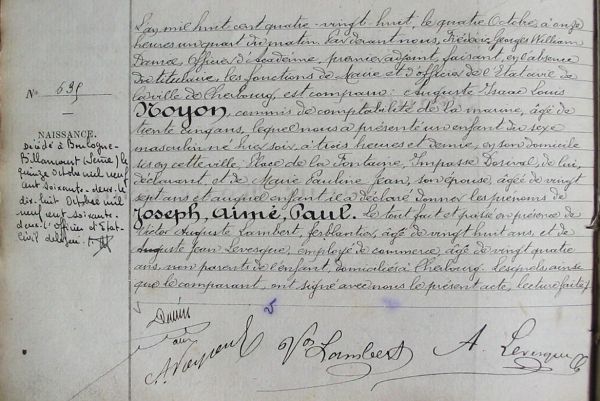 N° 695
NAISSANCE.
Décédé à Boulogne-
Billancourt (Seine) le
quinze Octobre mil neuf
cent soixante-deux. Le
dix-huit Octobre mil
neuf cent soixante-
deux. L'Officier d'Etat-
Civil délégué.
L'an mil huit cent quatre-vingt-huit, le quatre Octobre, à onze
heures un quart du matin. Par devant nous, Frédéric Georges William
Officier d'Académie, premier adjoint, faisant, en l'absence
du titulaire, les fonctions de Maire et d'officier de l'Etat civil de
la ville de Cherbourg, est comparu : Auguste Isaac Louis
Noyon, commis de comptabilité de la marine, âgé de
trente cinq ans, lequel nous a présenté un enfant du sexe
masculin né hier soir, à trois heures et demie, en son domicile
sis en cette ville, Place de la Fontaine, Impasse Dorival, de lui,
déclarant, et de Marie Pauline Jean, son épouse, âgée de vingt
sept ans et auquel enfant il a déclaré donner les prénoms de
Joseph, Aimé, Paul. Le tout fait et passé en présence de
Victor Auguste Lambert, ferblantier, âgé de vingt huit ans, et de
Auguste Jean Levesque, employé de commerce, âgé de vingt quatre
ans, non parents de l'enfant, domiciliés à Cherbourg. Lesquels ainsi
que le comparant, ont signé avec nous le présent acte, lecture faite.
A Noyon
Vor Lambert
A. Levesque